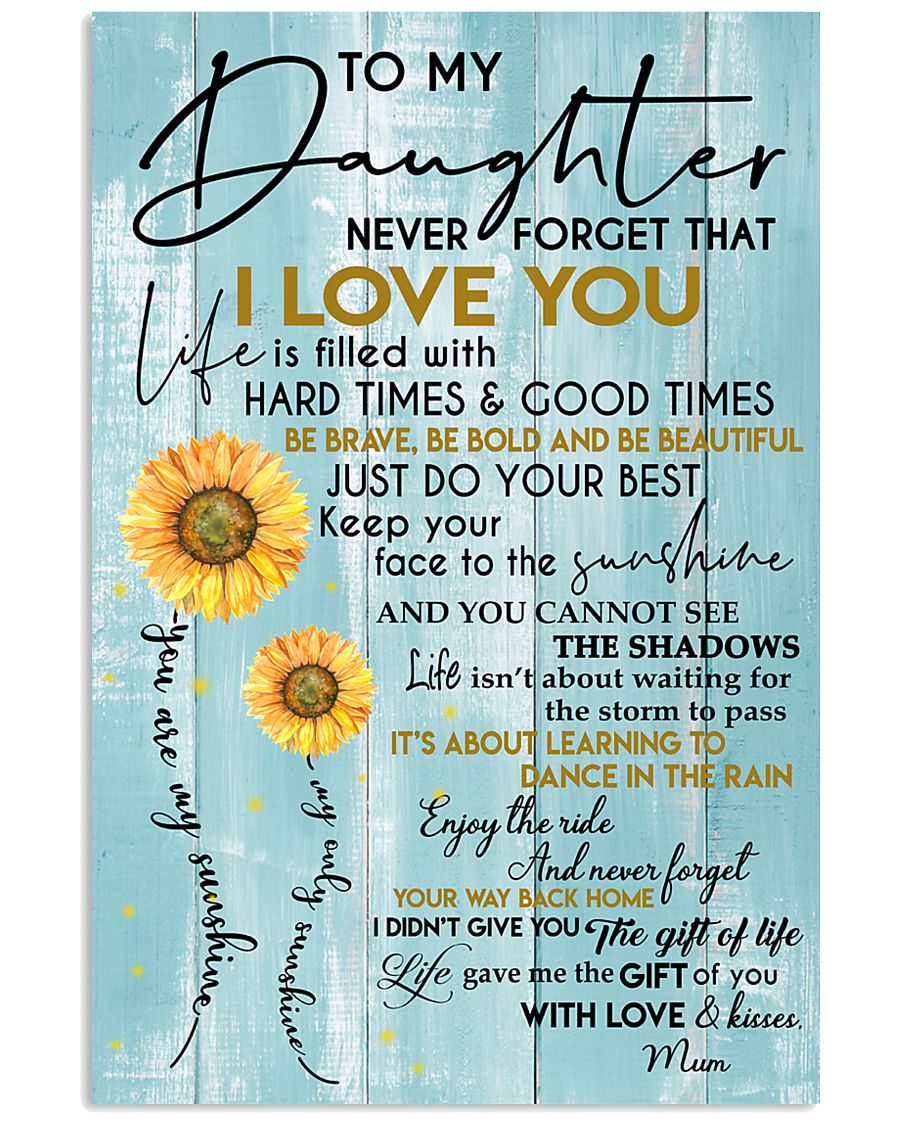 TO MY
Daughter
NEVER FORGET THAT
I LOVE YOU
Life is filled with
HARD TIMES & GOOD TIMES
BE BRAVE, BE BOLD AND BE BEAUTIFUL
JUST DO YOUR BEST
Keep your
face to the sunshine
AND YOU CANNOT SEE
THE SHADOWS
Life isn't about waiting for
the storm to pass
IT'S ABOUT LEARNING TO
DANCE IN THE RAIN
Enjoy the ride
And never forget
YOUR WAY BACK HOME
I DIDN'T GIVE YOU The gift of life
Life gave me the GIFT of you
WITH LOVE & kisses,
Mum
you are my sunshine
my only sunshine